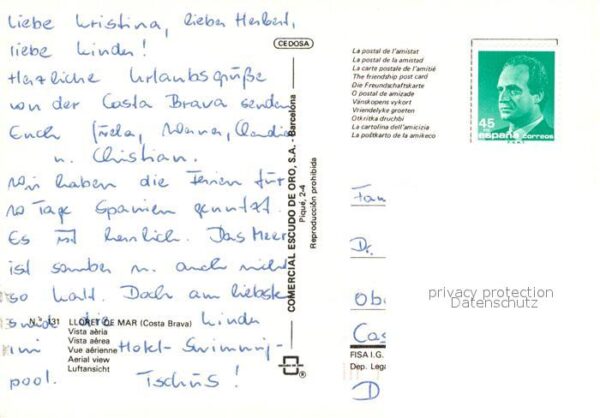 Liebe Kristina, lieber Herbert,
liebe Kinder!
Herzliche Urlaubsgrüße
von der Costa Brava senden
Euch Werner, Claudia
u. Christian.
Wir haben die Ferien für
10 Tage Spanien genutzt.
Es ist herrlich. Das Meer
ist sauber u. auch nicht
so kalt. Doch am liebsten
sind die Kinder
im Hotel-Swimming-
pool. Tschüs!
N.º 131 LLORET DE MAR (Costa Brava)
Vista aèria
Vista aérea
Vue aérienne
Aerial view
Luftansicht
CEDOSA
COMERCIAL ESCUDO DE ORO, S.A. - Barcelona
Piqué, 2-4
Reproducción prohibida
La postal de l'amistat
La postal de la amistad
La carte postale de l'amitié
The friendship post card
Die Freundschaftskarte
O postal de amizade
Vänskopens vykort
Vriendelyke groeten
Otkritka druchbi
La cartolina dell'amicizia
La poŝtkarto de la amikeco
45
PTA
españa correos
Fam
Dr.
Ob
Cas
D
FISA I.G.
Dep. Lega
privacy protection
Datenschutz